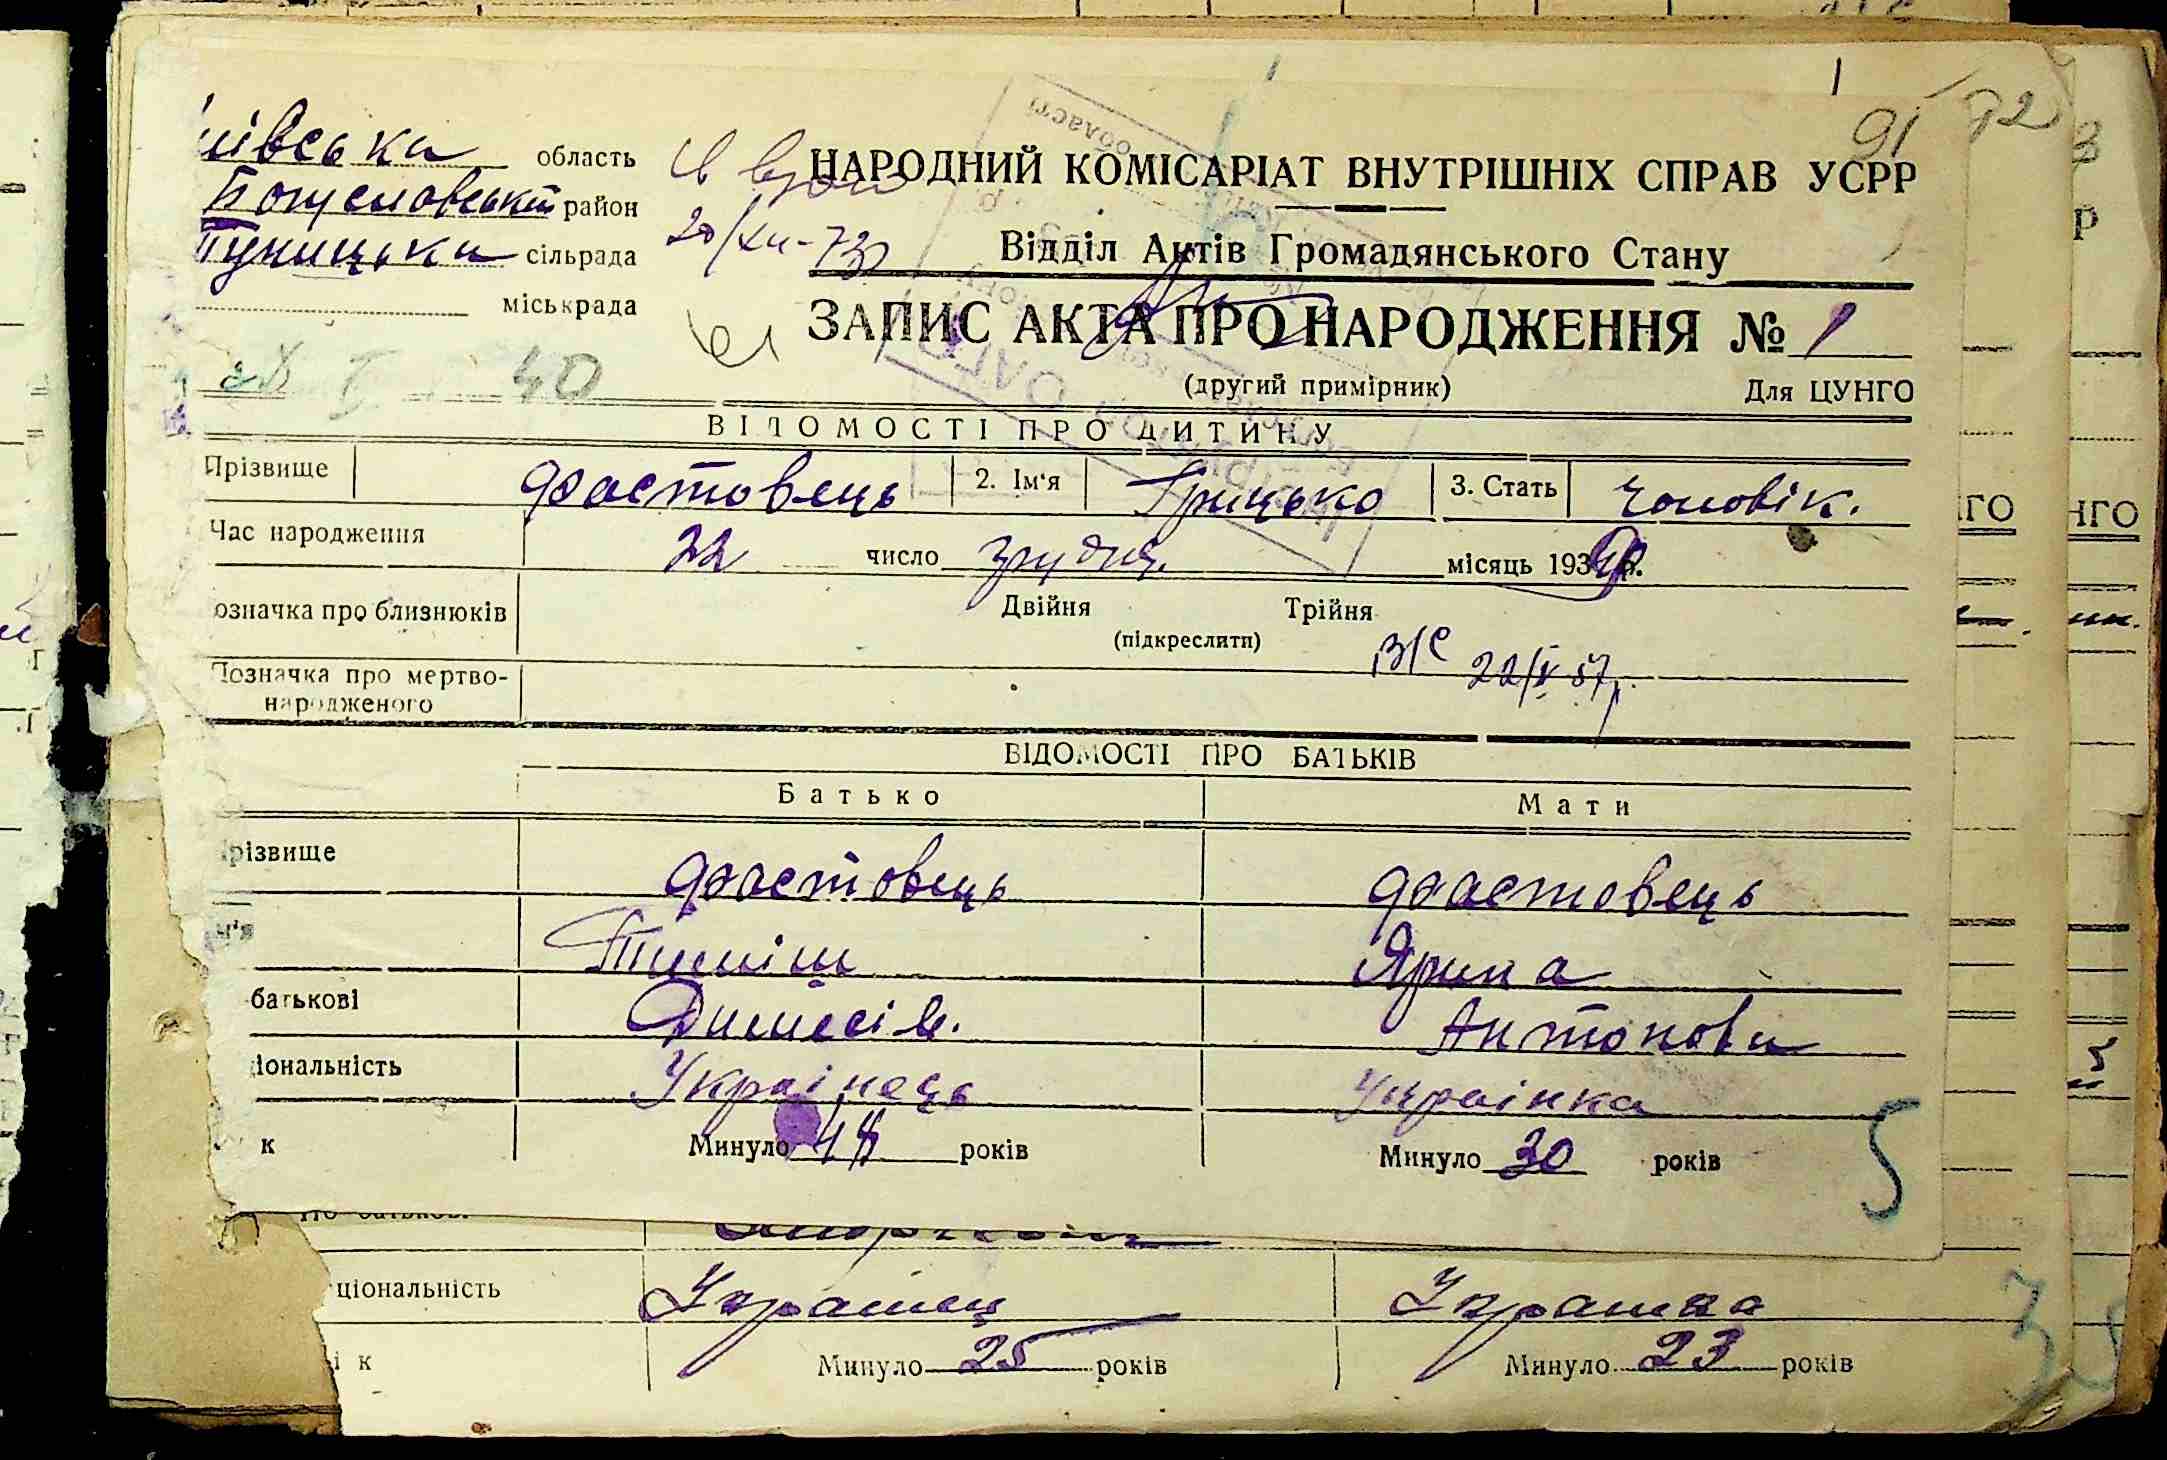 ївська область
Богуславський район
Туницька сільрада
міськрада
20/XII-73
91 92
НАРОДНИЙ КОМІСАРІАТ ВНУТРІШНІХ СПРАВ УСРР
Відділ Актів Громадянського Стану
ЗАПИС АКТА ПРО НАРОДЖЕННЯ № 1
(другий примірник) Для ЦУНГО
40
ВІДОМОСТІ ПРО ДИТИНУ
Прізвище Фастовець 2. Ім'я Грицько 3. Стать чоловік.
Час народження 22 число грудня місяць 193 р.
означка про близнюків Двійня Трійня
(підкреслити)
В/С 22/V 57р.
Позначка про мертво-
народженого
ВІДОМОСТІ ПРО БАТЬКІВ
Батько Мати
різвище Фастовець Фастовець
м'я Тиміш Ярина
батькові Антонова
ціональність Українець Українка
к Минуло років Минуло 30 років
5
По батькові
ціональність Украінец Украінка
і к Минуло 25 років Минуло 23 років
ГО
НГО